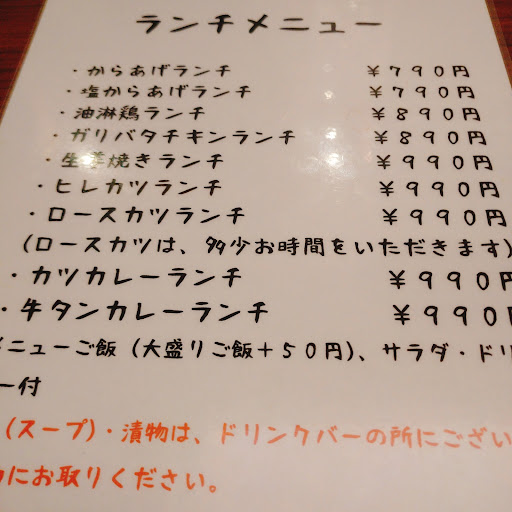 ランチメニュー
・からあげランチ ￥790円
・塩からあげランチ ￥790円
・油淋鶏ランチ ￥890円
・ガリバタチキンランチ ￥890円
・生姜焼きランチ ￥990円
・ヒレカツランチ ￥990円
・ロースカツランチ ￥990円
(ロースカツは、多少お時間をいただきます)
・カツカレーランチ ￥990円
・牛タンカレーランチ ￥990円
メニューご飯(大盛りご飯+50円)、サラダ・ドリ
ー付
(スープ)・漬物は、ドリンクバーの所にござい
にお取りください。